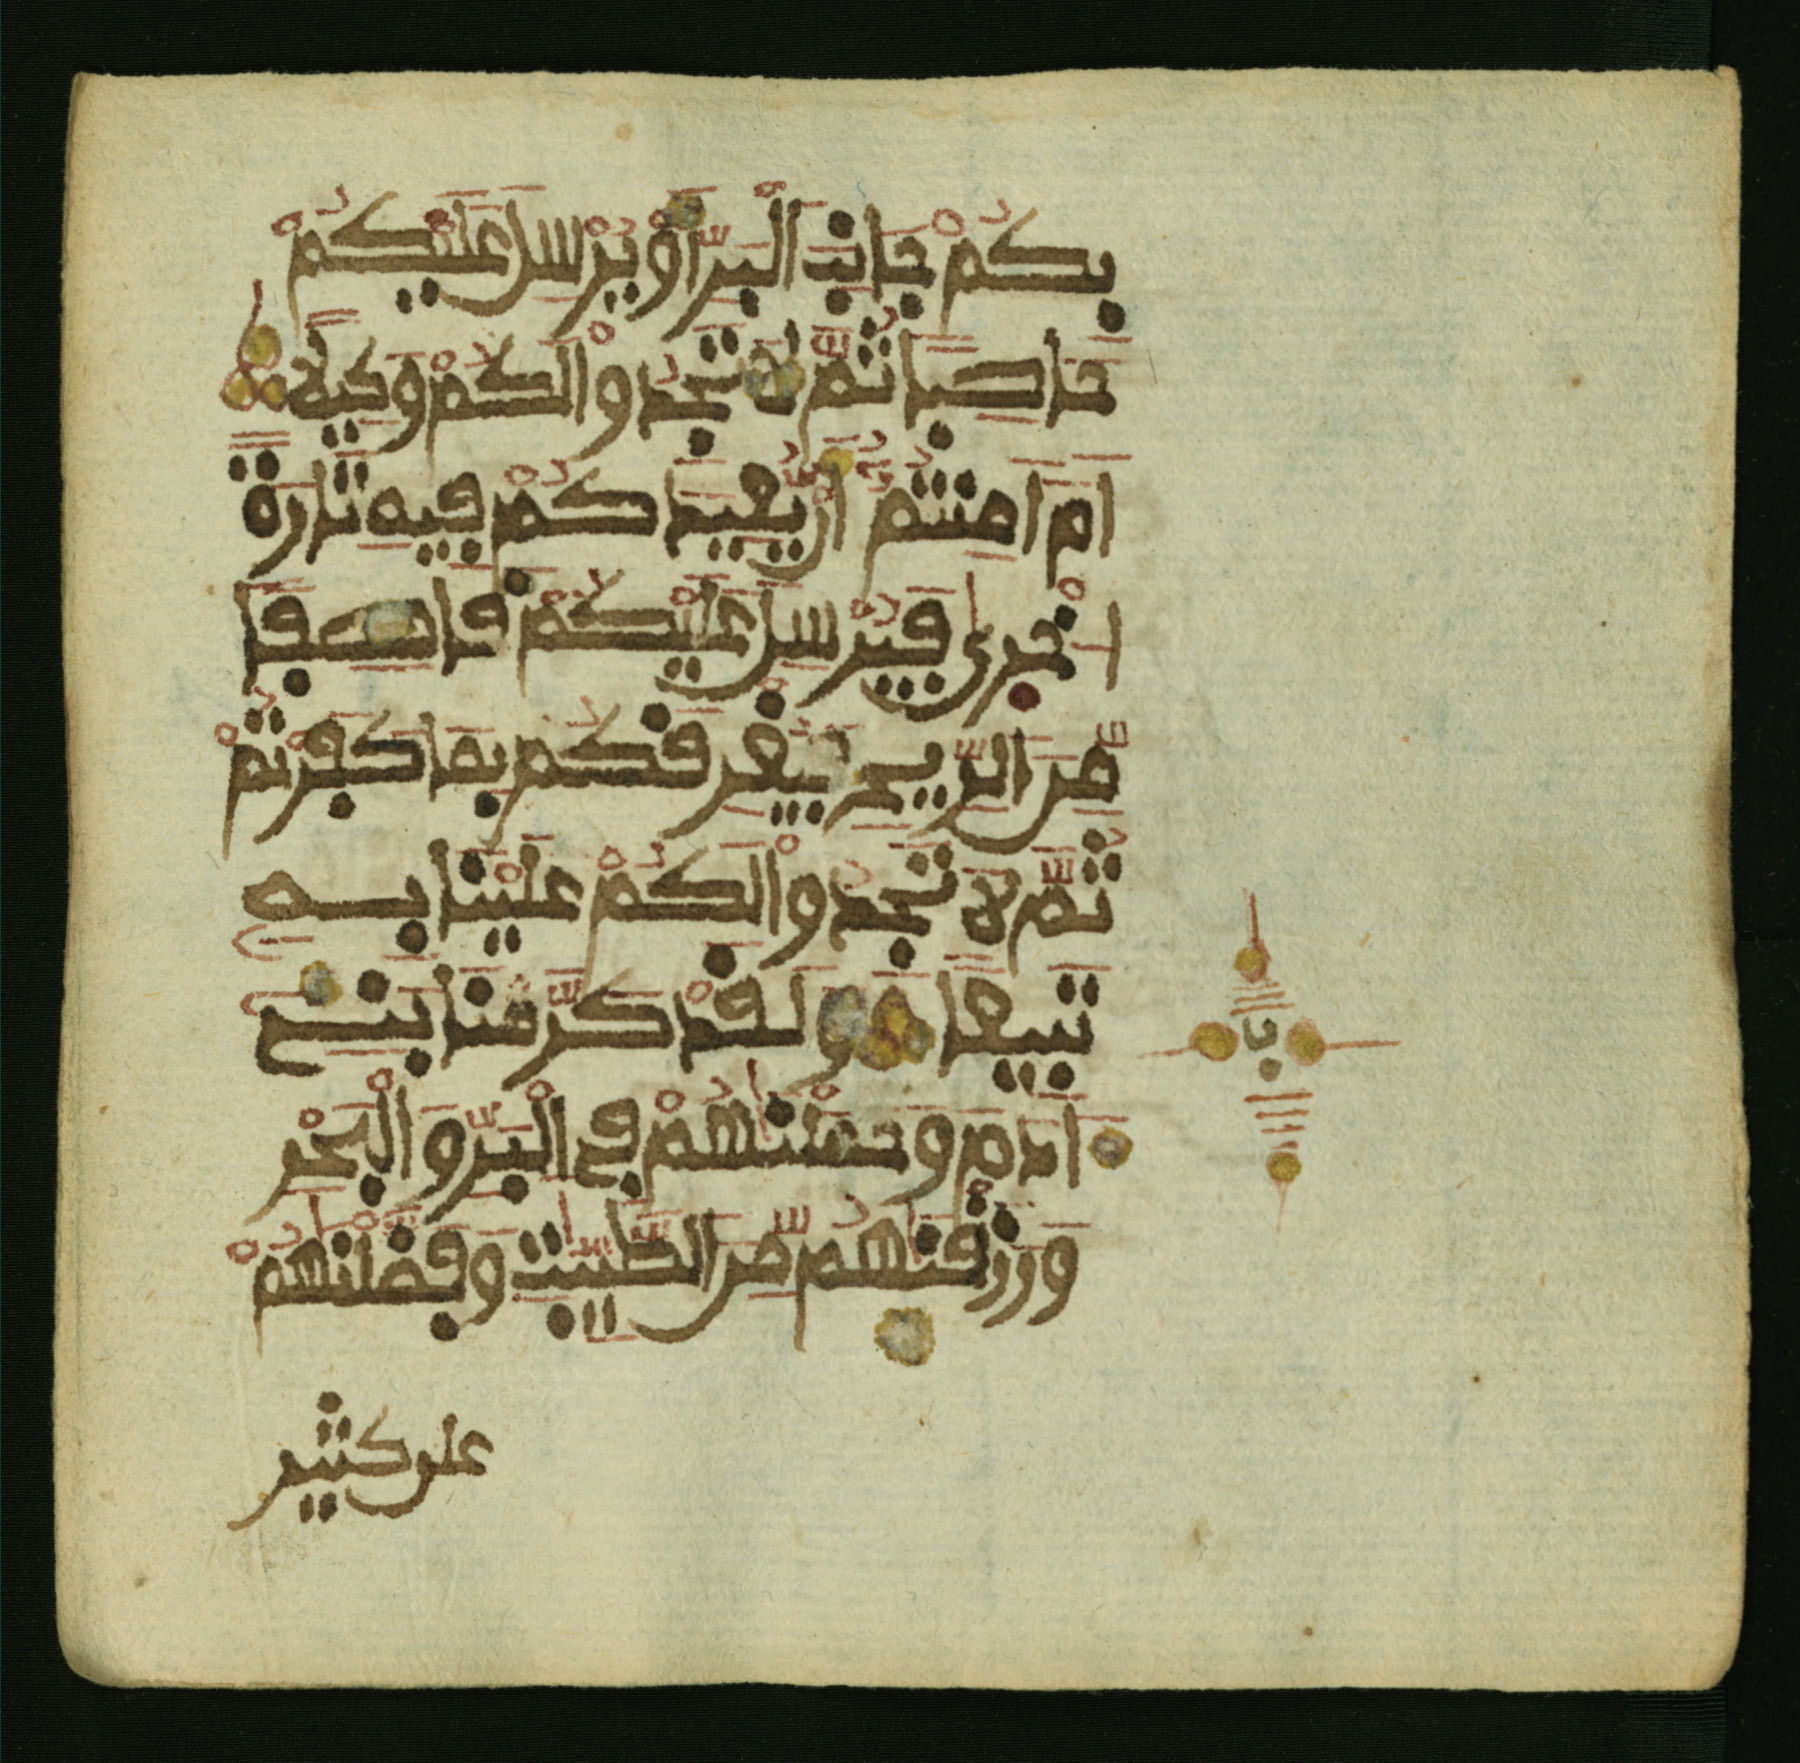 بِكُمْ جَانِبَ ٱلْبَرِّ أَوْ يُرْسِلَ عَلَيْكُمْ
حَاصِبًا ثُمَّ لَا تَجِدُوا۟ لَكُمْ وَكِيلًا
أَمَ امِنتُمُۥٓ أَنْ يُّعِيدَكُمْ فِيهِ تَارَةً
ا۟خْرٜىٰ فَيُرْسِلَ عَلَيْكُمْ قَاصِفًا
مِّنَ ٱلرِّيحِ فَيُغْرِقَكُم بِمَا كَفَرْتُمْ
ثُمَّ لَا تَجِدُوا۟ لَكُمْ عَلَيْنَا بِهِۦ
تَبِيعًا وَلَقَدْ كَرَّمْنَا بَنِےٓ
ءَادَمَ وَحَمَلْنَٰهُمْ فِے ٱلْبَرِّ وَٱلْبَحْرِ
وَرَزَقْنَٰهُم مِّنَ ٱلطَّيِّبَٰتِ وَفَضَّلْنَٰهُمْ
على كثير